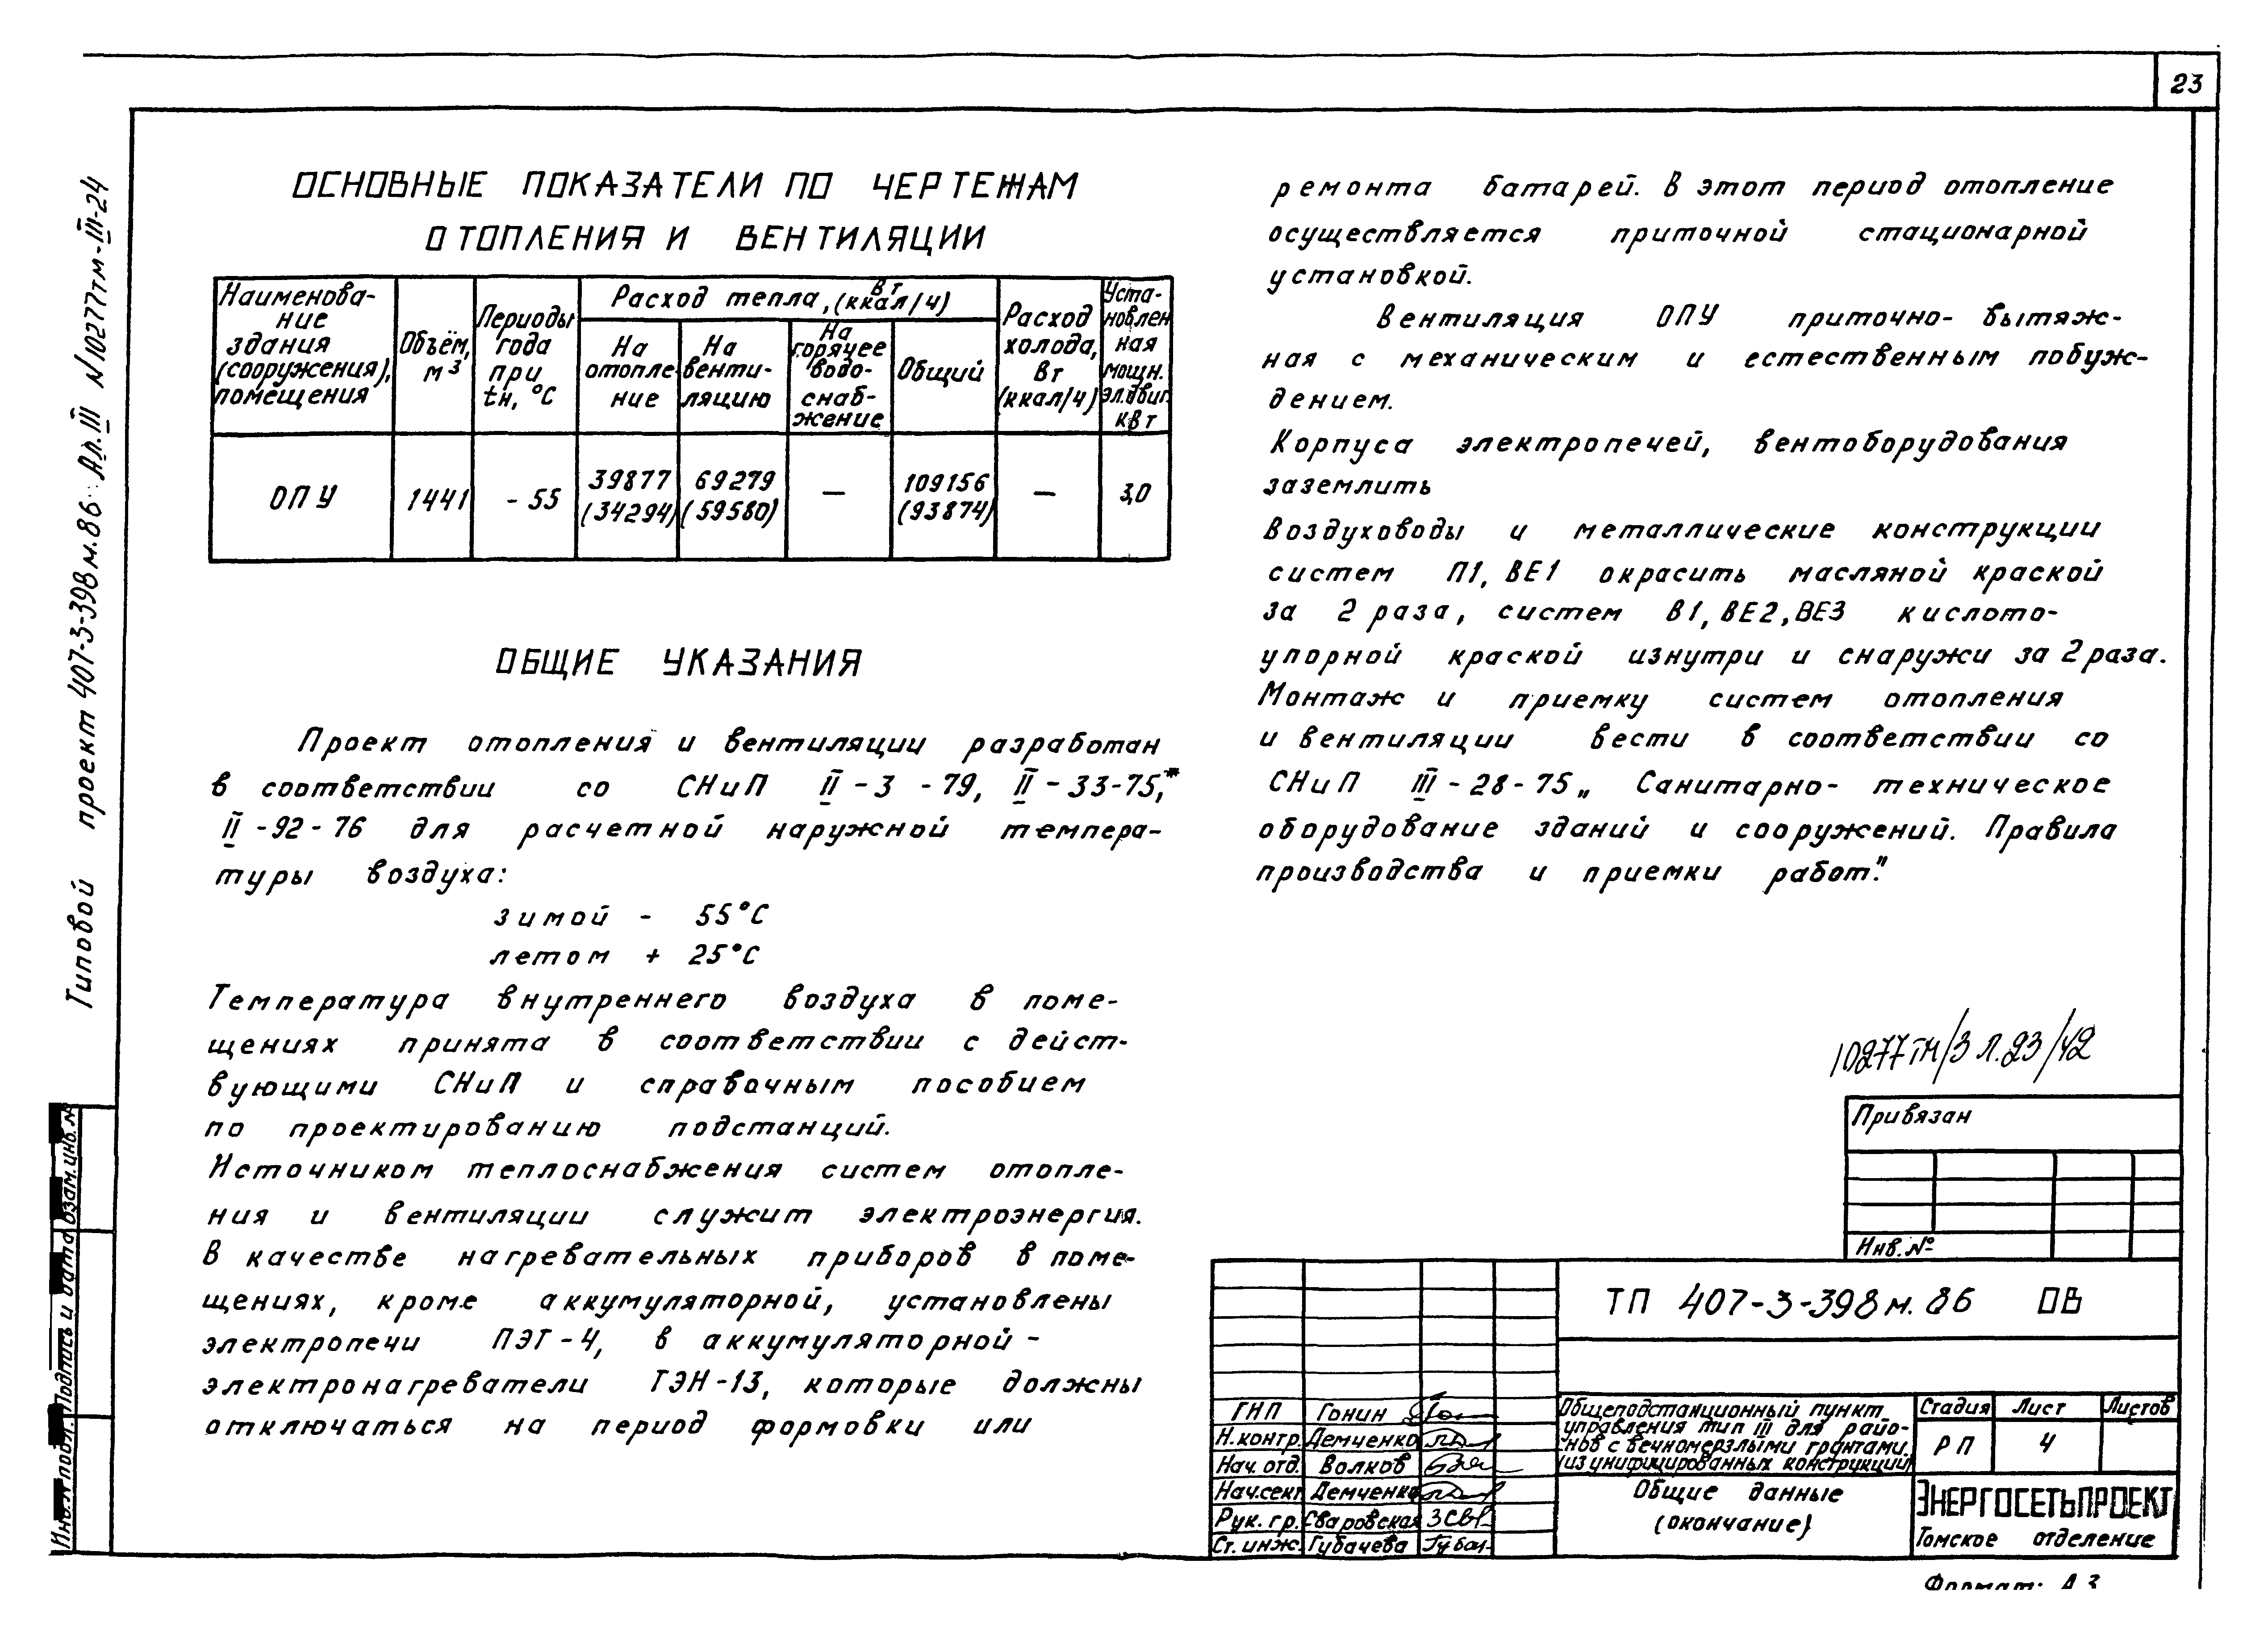 23
Типовой проект 407-3-398м.86 Ал. III N10277тм-III-24
ОСНОВНЫЕ ПОКАЗАТЕЛИ ПО ЧЕРТЕЖАМ
ОТОПЛЕНИЯ И ВЕНТИЛЯЦИИ
Наименова-
ние
здания
(сооружения),
помещения
Объём,
м³
Периоды
года
при
tн, °С
Расход тепла, Вт (ккал/ч)
На
отопле-
ние
На
венти-
ляцию
На
горячее
водо-
снаб-
жение
Общий
Расход
холода,
Вт
(ккал/ч)
Уста-
новлен
ная
мощн.
эл.двиг.
кВт
ОПУ 1441 - 55 39877 69279 — 109156 — 3,0
(34294) (59580) (93874)
ОБЩИЕ УКАЗАНИЯ
Проект отопления и вентиляции разработан
в соответствии со СНиП II - 3 - 79, II - 33-75,*
II - 92 - 76 для расчетной наружной темпера-
туры воздуха:
зимой - 55°С
летом + 25°С
Температура внутреннего воздуха в поме-
щениях принята в соответствии с дейст-
вующими СНиП и справочным пособием
по проектированию подстанций.
Источником теплоснабжения систем отопле-
ния и вентиляции служит электроэнергия.
В качестве нагревательных приборов в поме-
щениях, кроме аккумуляторной, установлены
электропечи ПЭТ-4, в аккумуляторной -
электронагреватели ТЭН-13, которые должны
отключаться на период формовки или
ремонта батарей. В этот период отопление
осуществляется приточной стационарной
установкой.
Вентиляция ОПУ приточно- вытяж-
ная с механическим и естественным побуж-
дением.
Корпуса электропечей, вентоборудования
заземлить
Воздуховоды и металлические конструкции
систем П1, ВЕ1 окрасить масляной краской
за 2 раза, систем В1, ВЕ2, ВЕ3 кислото-
упорной краской изнутри и снаружи за 2 раза.
Монтаж и приемку систем отопления
и вентиляции вести в соответствии со
СНиП III - 28 - 75 „ Санитарно- техническое
оборудование зданий и сооружений. Правила
производства и приемки работ."
10277тм/3 л.23/42
Привязан
Инв. №
ТП 407-3-398м.86 ОВ
ГИП Гонин
Н.контр. Демченко
Нач. отд. Волков
Нач.сект Демченко
Рук. гр. Сваровская
Ст. инж. Губачева
Общеподстанционный пункт
управления тип III для райо-
нов с вечномерзлыми грунтами,
(из унифицированных конструкций)
Стадия Лист Листов
РП 4
Общие данные
(окончание)
ЭНЕРГОСЕТЬПРОЕКТ
Томское отделение
Формат: А3
Инв.N подл. Подпись и дата Взам.инв.N